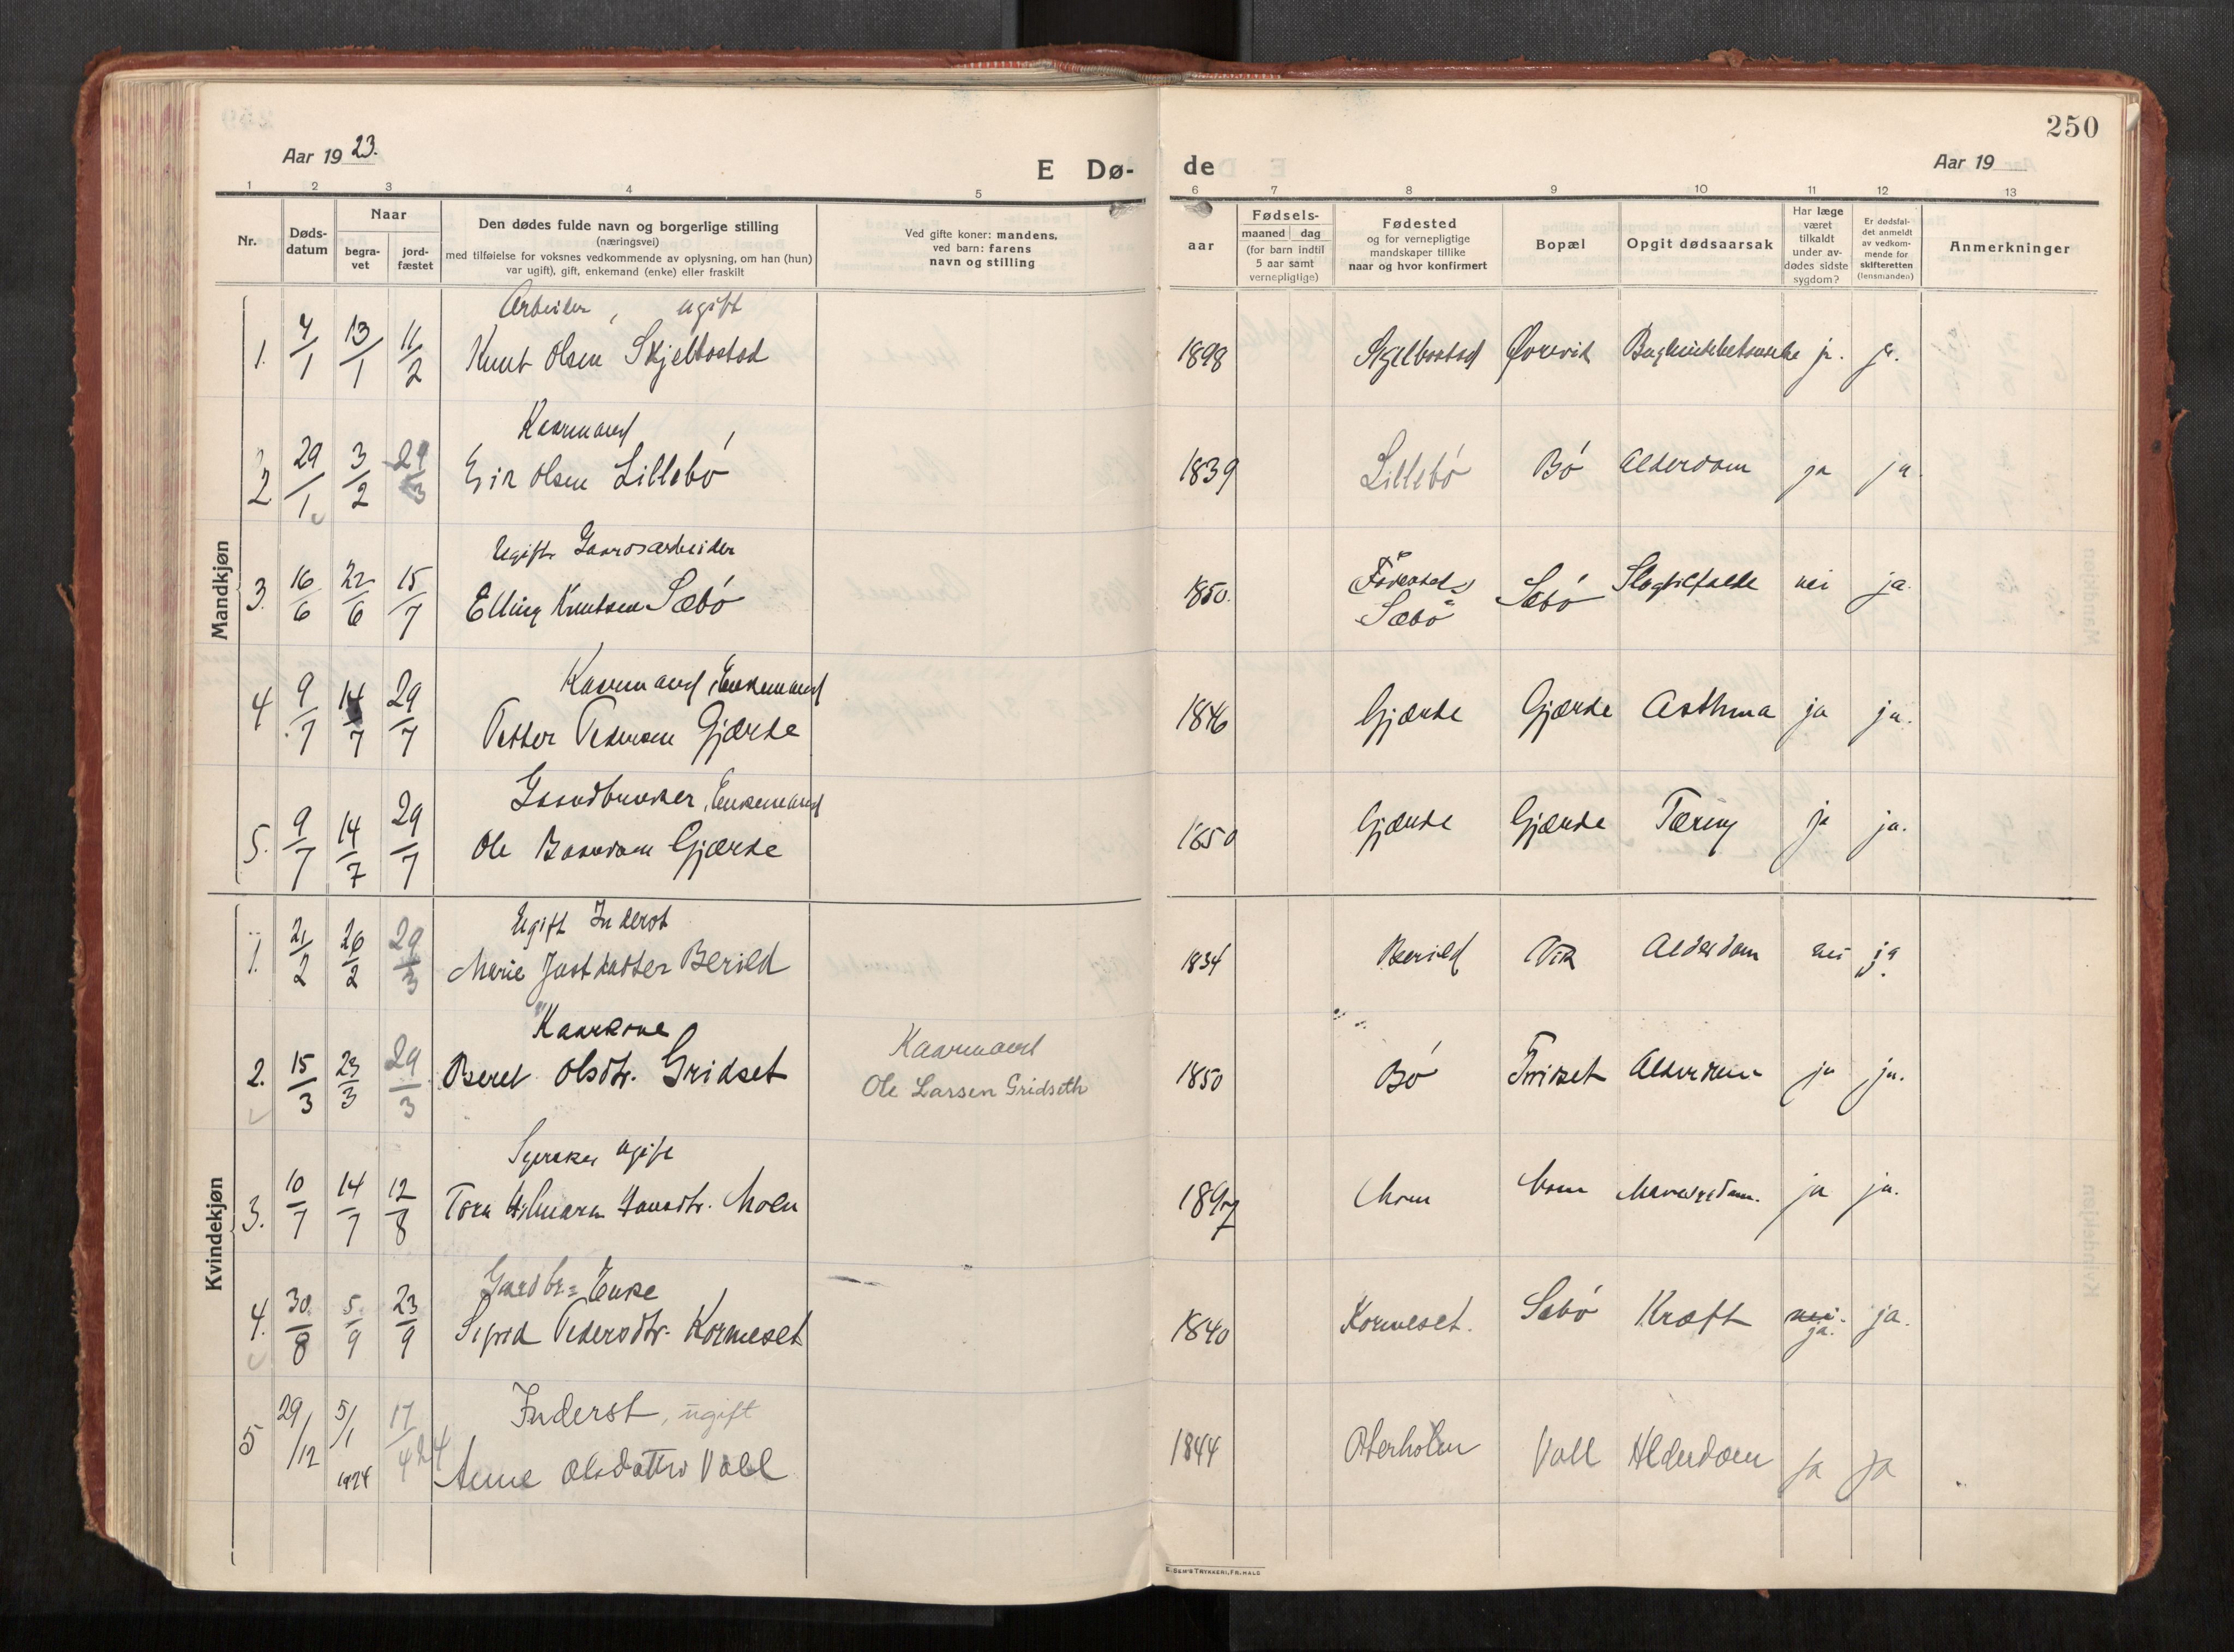 250
Aar 1923.
E Dø-
de
Aar 19
1 2 3 4 5
6 7 8 9 10 11 12 13
Nr.
Døds-
datum
Naar
begra-
vet
jord-
fæstet
Den dødes fulde navn og borgerlige stilling
(næringsvei)
med tilføielse for voksnes vedkommende av oplysning, om han (hun)
var ugift), gift, enkemand (enke) eller fraskilt
Ved gifte koner: mandens,
ved barn: farens
navn og stilling
aar
Fødsels-
maaned dag
(for barn indtil
5 aar samt
vernepligtige)
Fødested
og for vernepligtige
mandskaper tillike
naar og hvor konfirmert
Bopæl
Opgit dødsaarsak
Har læge
været
tilkaldt
under av-
dødes sidste
sygdom?
Er dødsfal-
det anmeldt
av vedkom-
mende for
skifteretten
(lensmanden)
Anmerkninger
Mandkjøn
Arbeider, ugift
1. 4/1 13/1 11/2 Knut Olsen Skjelbostad 1898 Skjelbostad Øvrevik ja. ja.
Kaarmand
2 29/1 3/2 29/3 Eirik Olsen Lillebó 1839 Lillebó Bó Alderdom ja ja.
Ugift Gaardsarbeider
3. 16/6 22/6 15/7 Elling Knutsen Sæbó 1850. Sæbö Sæbó Slagtilfælde nei ja.
Kaarmand, Enkemand
4 9/7 14/7 29/7 Petter Pedersen Gjærde 1846 Gjærde Gjærde Asthma ja ja.
Gaardbruker, Enkemand
5. 9/7 14/7 29/7 Ole Gjærde 1850 Gjærde Gjærde Tæring ja ja.
Kvindekjøn
Ugift Inderst
1. 21/2 26/2 29/3 Marie Jostdatter Berild 1834 Berild Vik Alderdom nei ja.
Kaarkone
Kaarmand
2. 15/3 23/3 29/3 Beret Olsdtr. Gridset Ole Larsen Gridseth 1850 Bó Gridset Alderdom ja ja.
ugift
3. 10/7 14/7 12/8 Tora Hansdtr. Moen 1897 Moen Moen ja ja.
Gaardbr. Enke
4. 30/8 5/9 23/9 Sigrid Pedersdtr. Kormeset 1840 Kormeset. Sæbó Kræft nei. ja. ja.
Inderst, ugift
5 29/12 5/1 1924 17/4 24 Anne Olsdatter Voll 1844 Oterholm Voll Alderdom ja ja
E. SEM'S TRYKKERI, FR.HALD